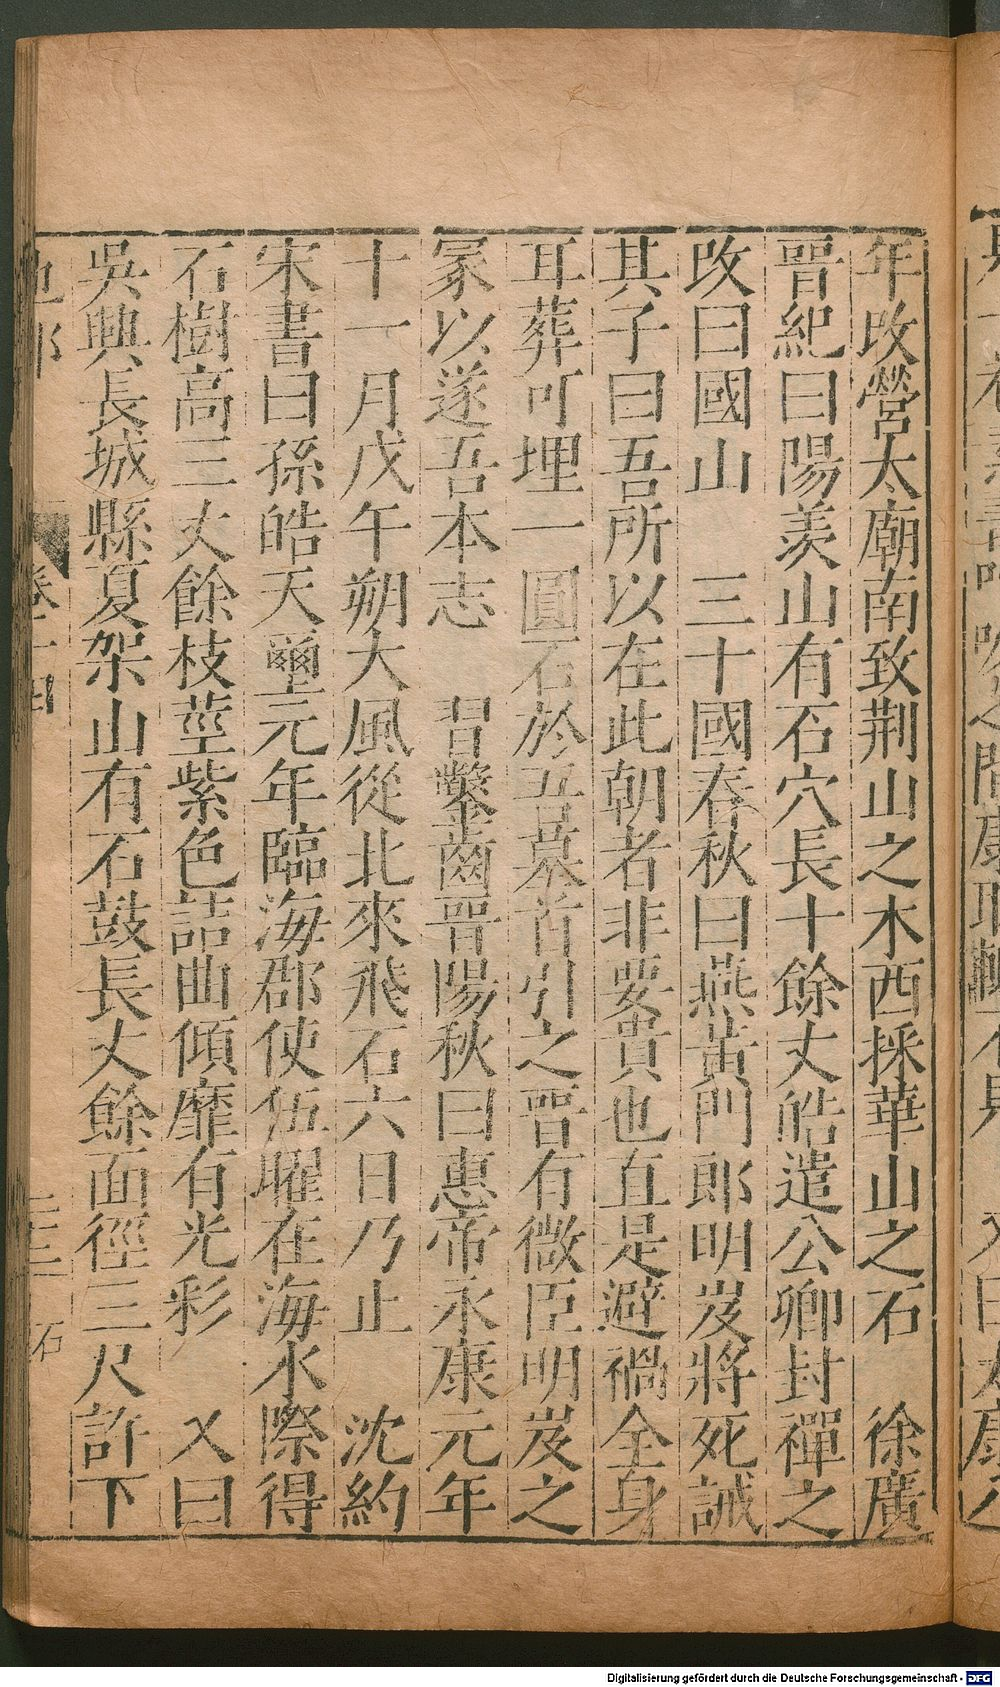 年改營太廟南致荆山之木西採華山之石　徐廣
晋紀曰陽羡山有石穴長十餘丈皓遣公卿封禪之
改曰國山　三十國春秋曰燕黄門郎明岌將死誡
其子曰吾所以在此朝者非要貴也直是避禍全身
耳葬可埋一圓石於吾墓首引之晋有微臣明岌之
冢以遂吾本志　習鑿齒晋陽秋曰惠帝永康元年
十一月戊午朔大風從北來飛石六日乃止　沈約
宋書曰孫皓天壐元年臨海郡使伍曜在海水際得
石樹高三丈餘枝莖紫色詰曲傾靡有光彩　又曰
吳興長城縣夏架山有石鼓長丈餘面徑三尺許下
地部
卷二十四
三三
石
Digitalisierung gefördert durch die Deutsche Forschungsgemeinschaft - DFG